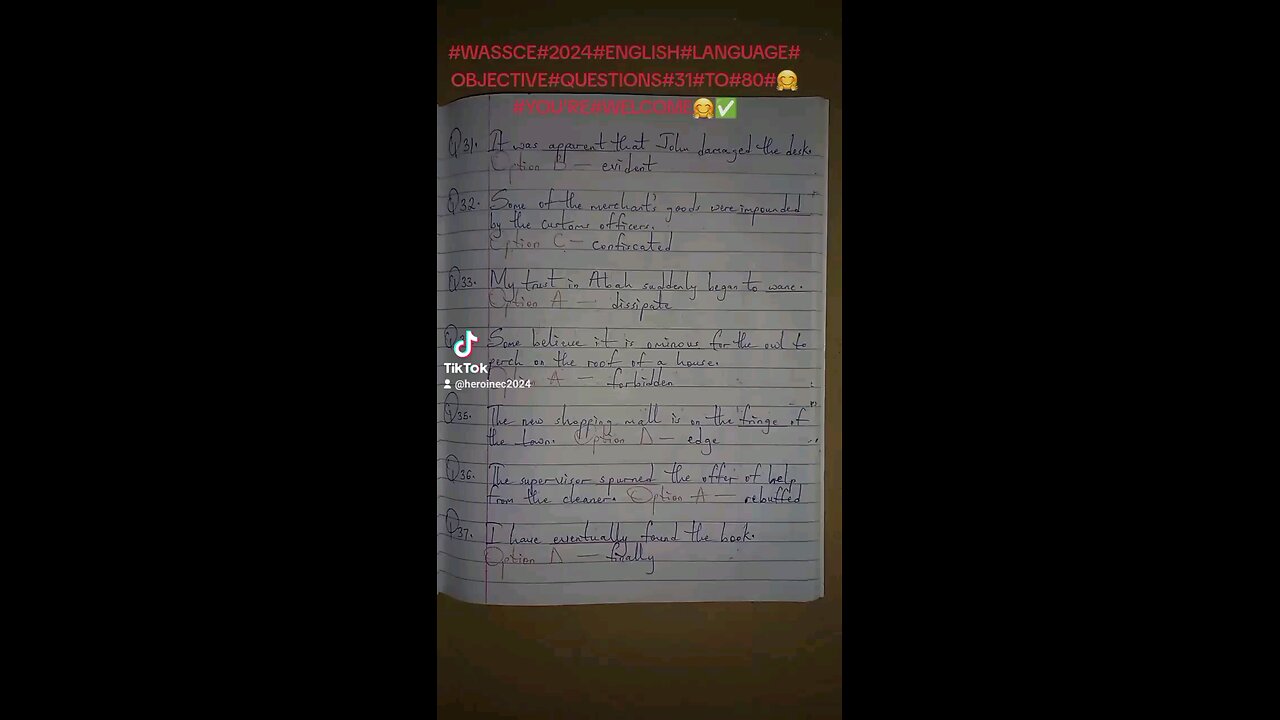 #WASSCE#2024#ENGLISH#LANGUAGE#
OBJECTIVE#QUESTIONS#31#TO#80#🤗
#YOU'RE#WELCOME🤗✅
Q31. It was apparent that John damaged the desk.
Option B — evident
Q32. Some of the merchant's goods were impounded
by the customs officers.
Option C — confiscated
Q33. My trust in Abah suddenly began to wane.
Option A — dissipate
Some believe it is ominous for the owl to
perch on the roof of a house.
Option A — forbidden
Q35. The new shopping mall is on the fringe of
the town. Option D — edge
Q36. The supervisor spurned the offer of help
from the cleaner. Option A — rebuffed
Q37. I have eventually found the book.
Option D — finally
TikTok
@heroinec2024